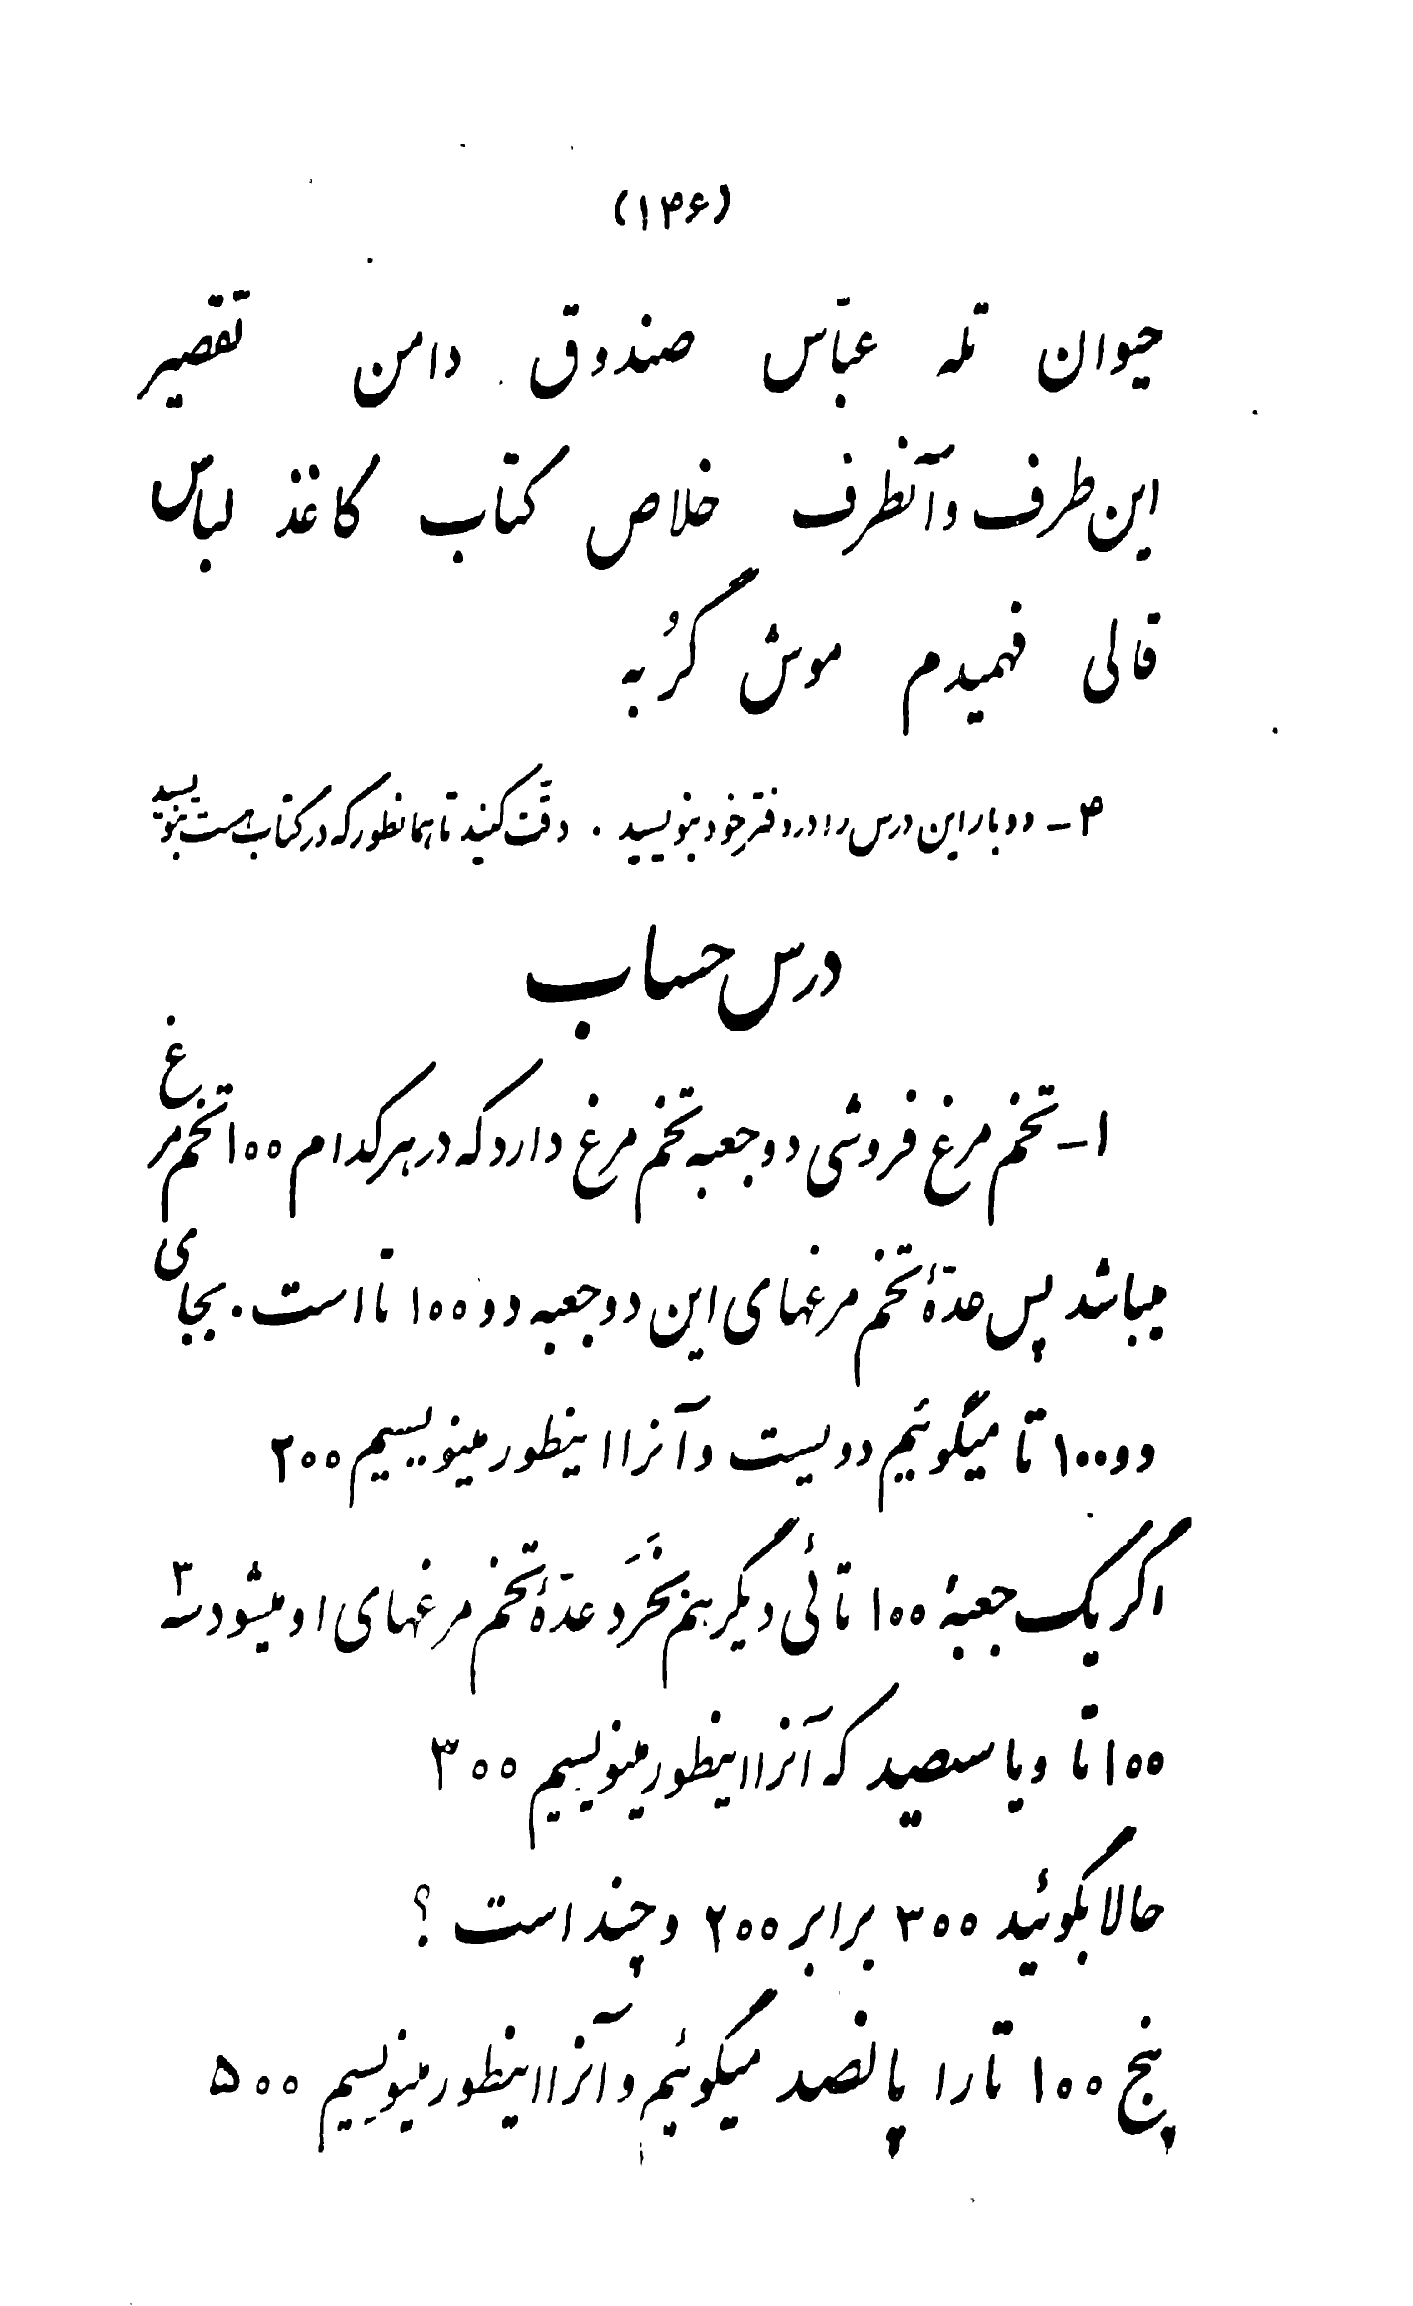 (۱۴۶)
حیوان تله عبّاس صندوق دامن تقصیر
این طرف وآنطرف خلاص کتاب کاغذ لباس
قالی فهمیدم موش گُربه
۴- دوبار این درس را در دفترِ خود بنویسید. دقّت کنید تا همانطور که در کتاب هست بنویسید
درس حساب
۱- تخم مرغ فروشی دو جعبه تخم مرغ دارد که در هر کدام ۱۰۰ تخم مرغ
میباشد پس عدّۀ تخم مرغهای این دو جعبه دو ۱۰۰ تا است. بجای
دو ۱۰۰ تا میگوئیم دویست و آنرا اینطور مینویسیم ۲۰۰
اگر یک جعبۀ ۱۰۰ تائی دیگر هم بخَرَد عدّۀ تخم مرغهای او میشود سه
۱۰۰ تا ویا سیصد که آنرا اینطور مینویسیم ۳۰۰
حالا بگوئید ۳۰۰ برابر ۲۰۰ و چند است؟
پنج ۱۰۰ تا را پانصد میگوئیم و آنرا اینطور مینویسیم ۵۰۰